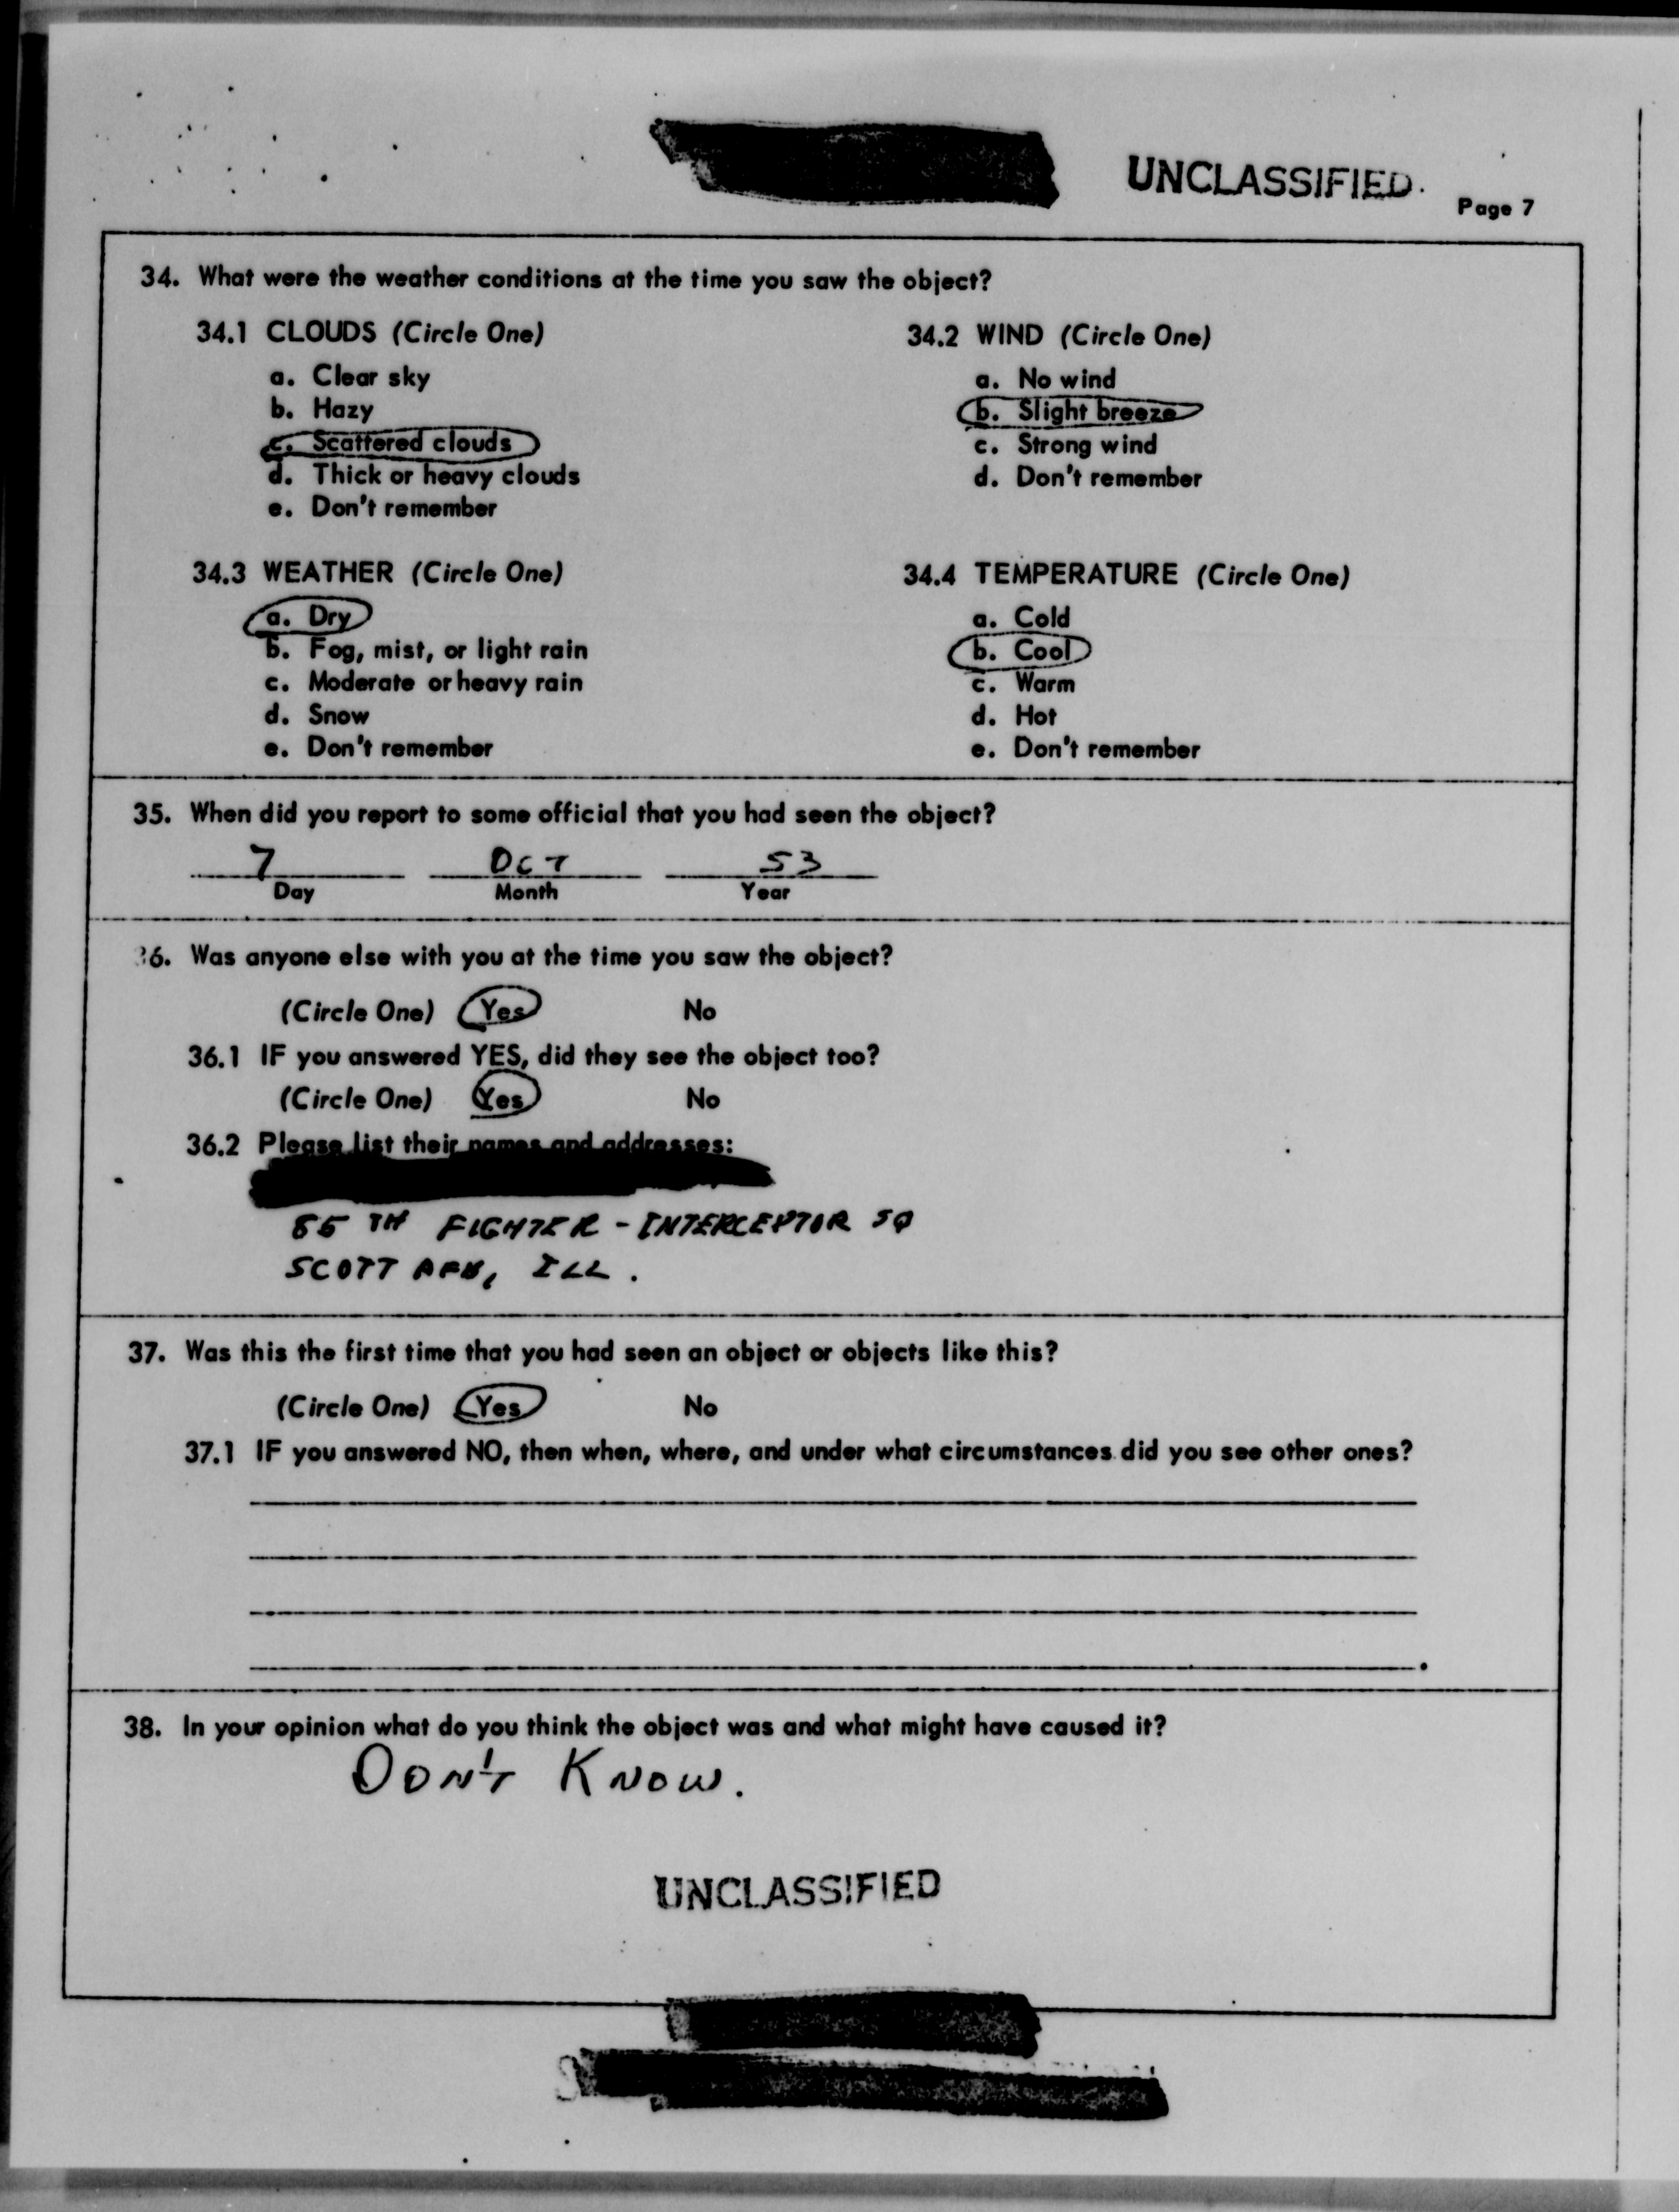 UNCLASSIFIED.
Page 7
34. What were the weather conditions at the time you saw the object?
34.1 CLOUDS (Circle One)
a. Clear sky
b. Hazy
c. Scattered clouds
d. Thick or heavy clouds
e. Don't remember
34.2 WIND (Circle One)
a. No wind
b. Slight breeze
c. Strong wind
d. Don't remember
34.3 WEATHER (Circle One)
a. Dry
b. Fog, mist, or light rain
c. Moderate or heavy rain
d. Snow
e. Don't remember
34.4 TEMPERATURE (Circle One)
a. Cold
b. Cool
c. Warm
d. Hot
e. Don't remember
35. When did you report to some official that you had seen the object?
7 OCT 53
Day Month Year
36. Was anyone else with you at the time you saw the object?
(Circle One) Yes No
36.1 IF you answered YES, did they see the object too?
(Circle One) Yes No
36.2 Please list their names and addresses:
85 TH FIGHTER - INTERCEPTOR SQ
SCOTT AFB, ILL.
37. Was this the first time that you had seen an object or objects like this?
(Circle One) Yes No
37.1 IF you answered NO, then when, where, and under what circumstances did you see other ones?
38. In your opinion what do you think the object was and what might have caused it?
DON'T KNOW.
UNCLASSIFIED